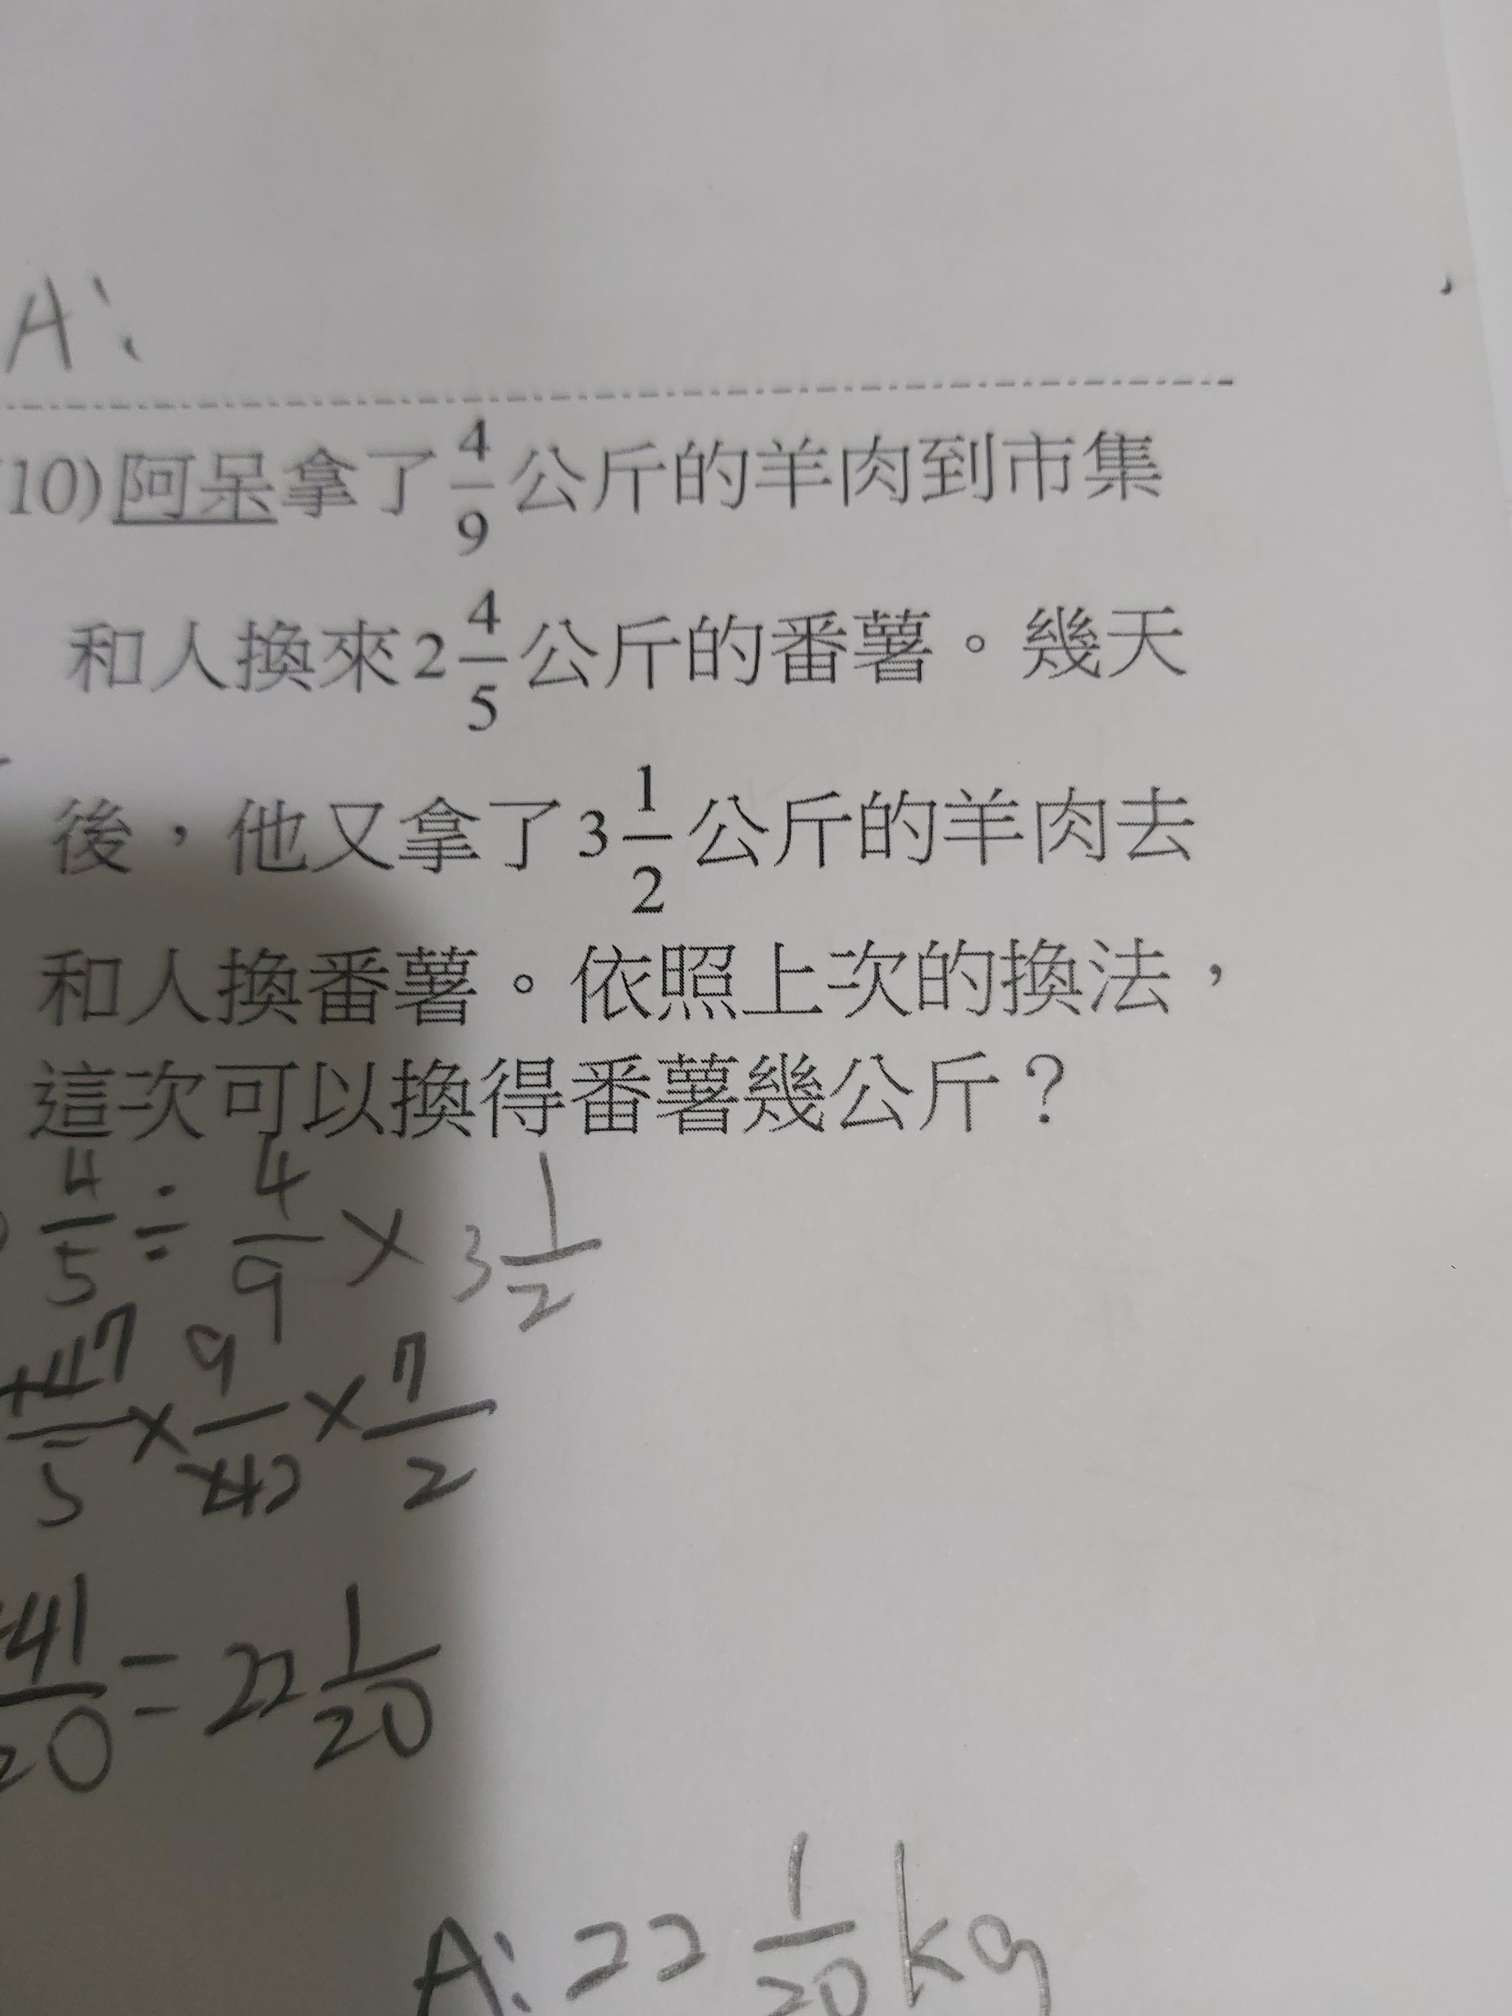 A:
10)阿呆拿了4/9公斤的羊肉到市集
和人換來2 4/5公斤的番薯。幾天
後，他又拿了3 1/2公斤的羊肉去
和人換番薯。依照上次的換法，
這次可以換得番薯幾公斤？
4/5 ÷ 4/9 × 3 1/2
7/5 × 9/2 × 7/2
441/20 = 22 1/20
A: 22 1/20 kg